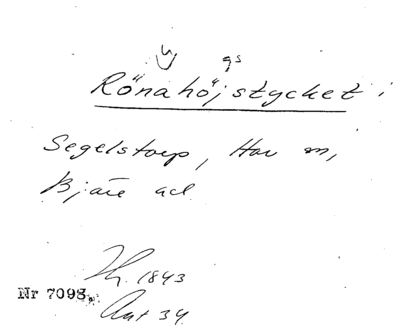 gs
Rönahöjstycket i
Segelstorp, Hov sn,
Bjäre
1843
Nr 7098.
Akt 34